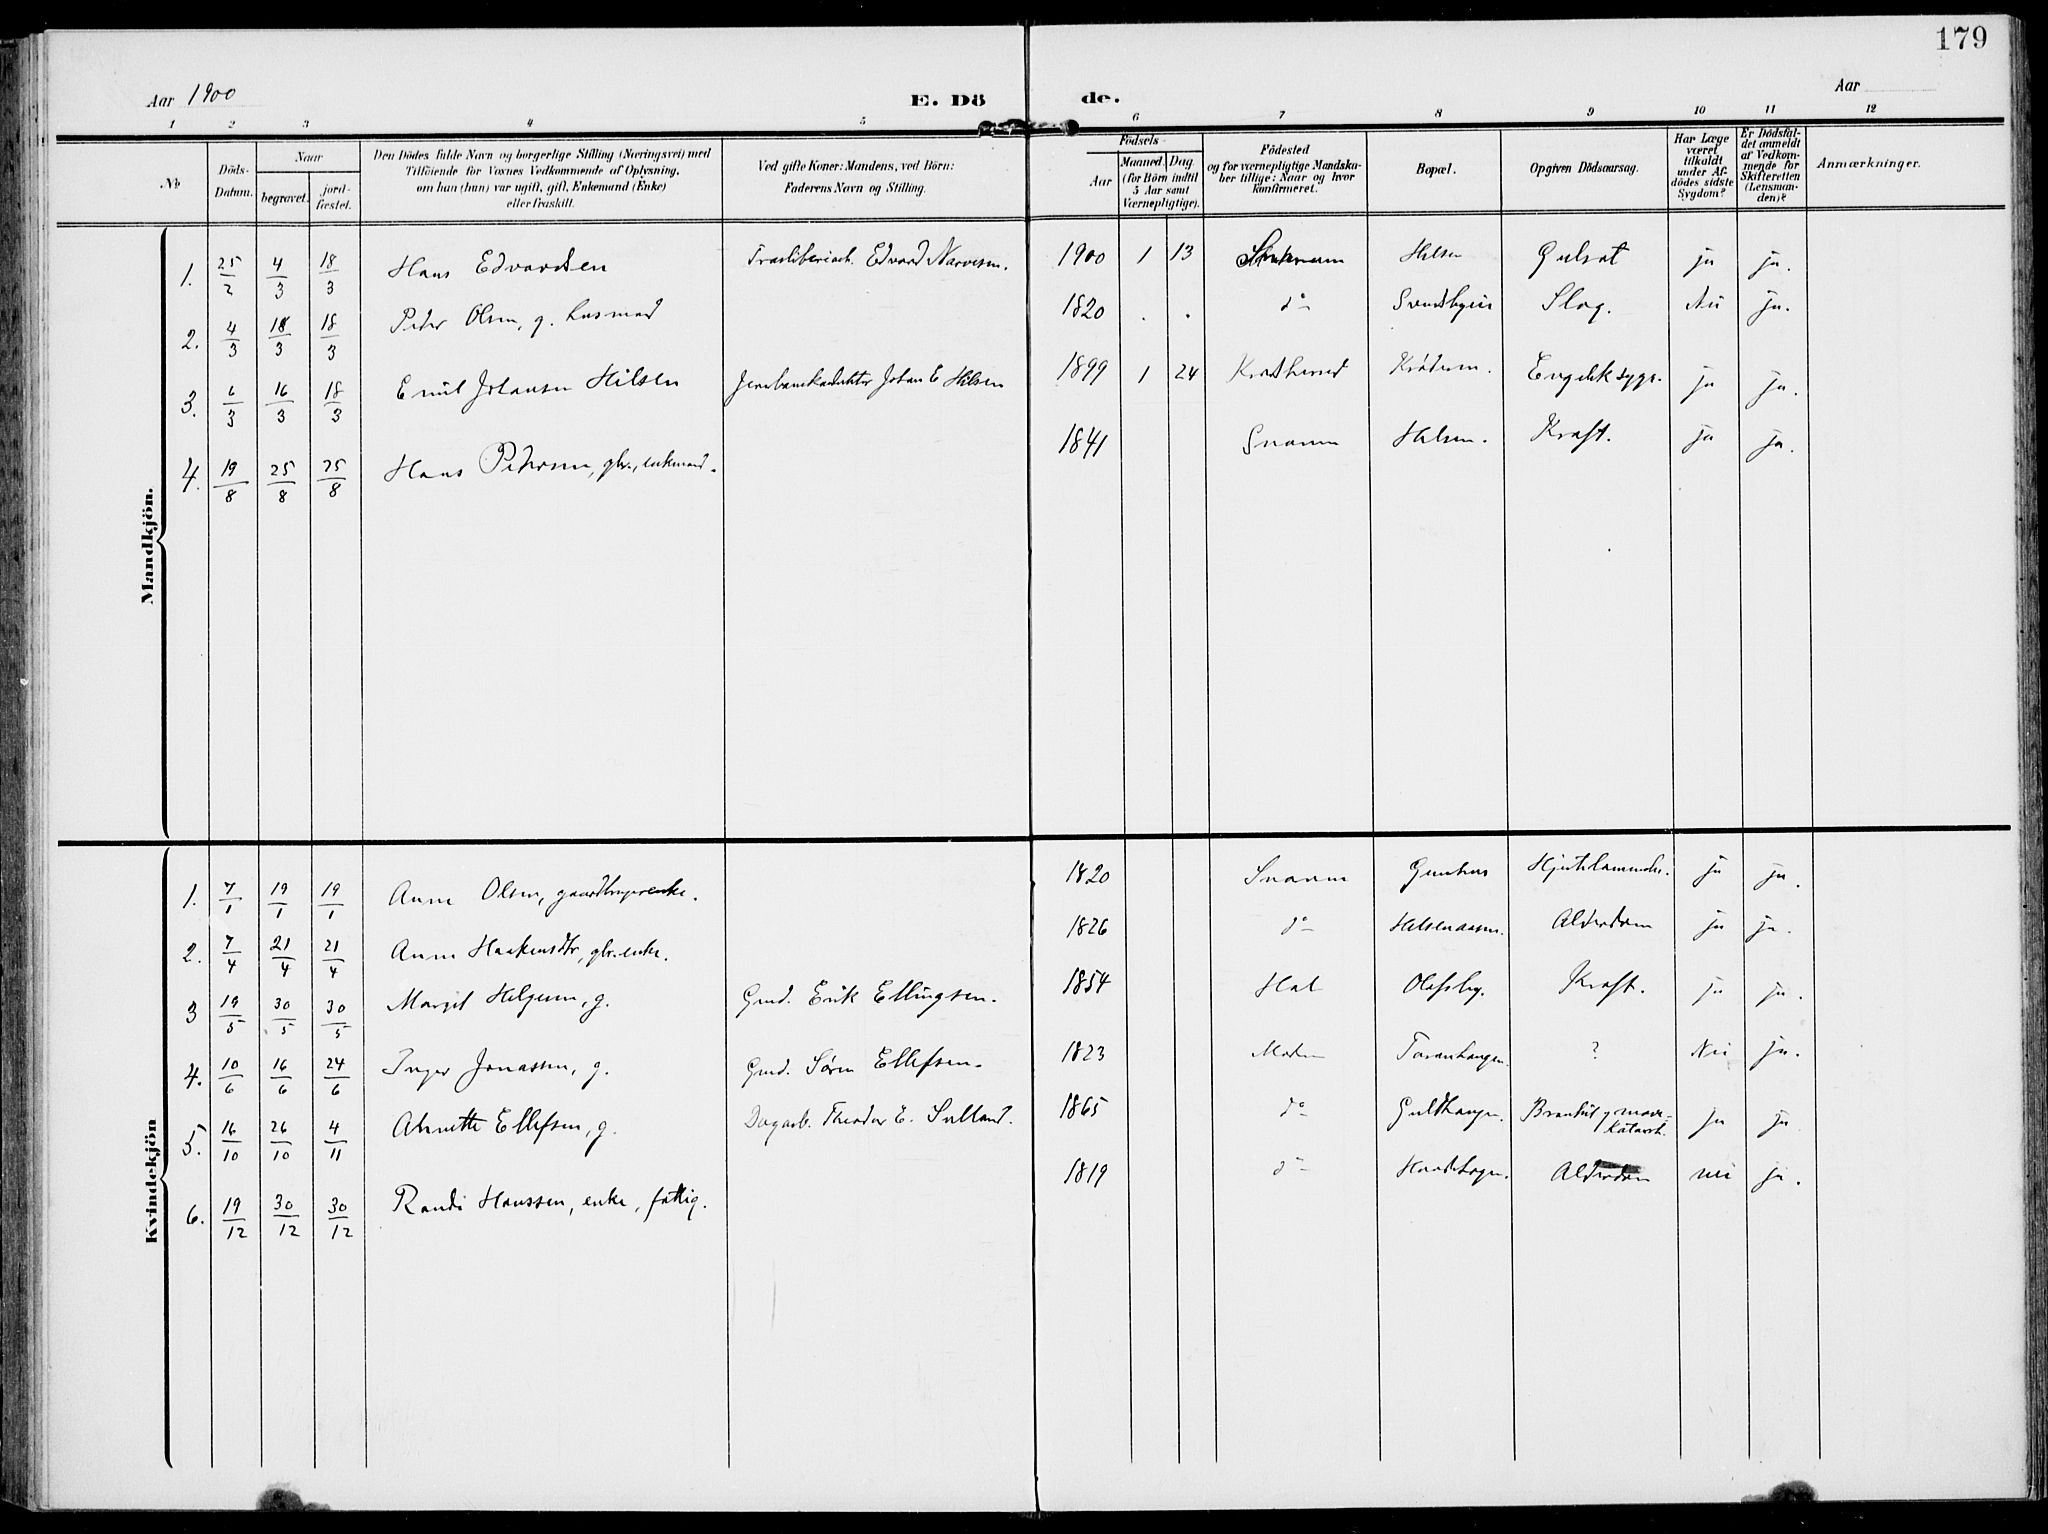 179
Aar 1900
E. Dö
de.
Aar
1 2 3 4 5 6 7 8 9 10 11 12
No
Döds-
Datum.
Naar
begravet.
jord-
fæstet.
Den Dödes fulde Navn og borgerlige Stilling (Næringsvei) med
Tilföiende for Voxnes Vedkommende af Oplysning,
om han (hun) var ugift, gift, Enkemand (Enke)
eller fraskilt.
Ved gifte Koner: Mandens, ved Börn:
Faderens Navn og Stilling.
Födsels-
Aar
Maaned. Dag
(for Börn indtil
5 Aar samt
Værnepligtige).
Födested
og for værnepligtige Mandska-
ber tillige: Naar og hvor
konfirmeret.
Bopæl.
Opgiven Dödsaarsag.
Har Læge
været
tilkaldt
under Af-
dödes sidste
Sygdom?
Er Dödsfal-
det anmeldt
af Vedkom-
mende for
Skifteretten
(Lensman-
den)?
Anmærkninger.
Mandkjön.
1. 25/2 4/3 18/3 Hans Edvardsen Edvard Narvesen. 1900 1 13 Snarum Hilsen Gulsot ja ja.
2. 4/3 18/3 18/3 Peder Olsen, g. husmand 1820 . . do Slag. Nei ja.
3. 6/3 16/3 18/3 Emil Johansen Hilsen Johan E Hilsen 1899 1 24 Krødsherred Krøderen. Engelsk syge. ja ja.
4. 19/8 25/8 25/8 Hans Pedersen, gbr., enkemand. 1841 Snarum Hilsen. Kræft. ja ja.
Kvindekjön
1. 7/1 19/1 19/1 Anne Olsen, gaardbrugerenke. 1820 Snarum ja ja.
2. 7/4 21/4 21/4 Anne Haakensdtr, gbr.enke. 1826 do Hilsenaasen. Alderdom ja ja.
3 19/5 30/5 30/5 Margit Helgesen, g. Gmd. Erik Ellingsen. 1854 Hol Olafsby. Kræft. ja ja.
4. 10/6 16/6 24/6 Inger Jonassen, g. Gmd. Søren Ellefsen. 1823 Modum ? Nei ja.
5. 16/10 26/10 4/11 Ellefsen, g. Dagarb. Theodor E. 1865 do Gulhaugen. ja ja
6. 19/12 30/12 30/12 Randi Hanssen, enke, fattig. 1819 do Alderdom nei ja.